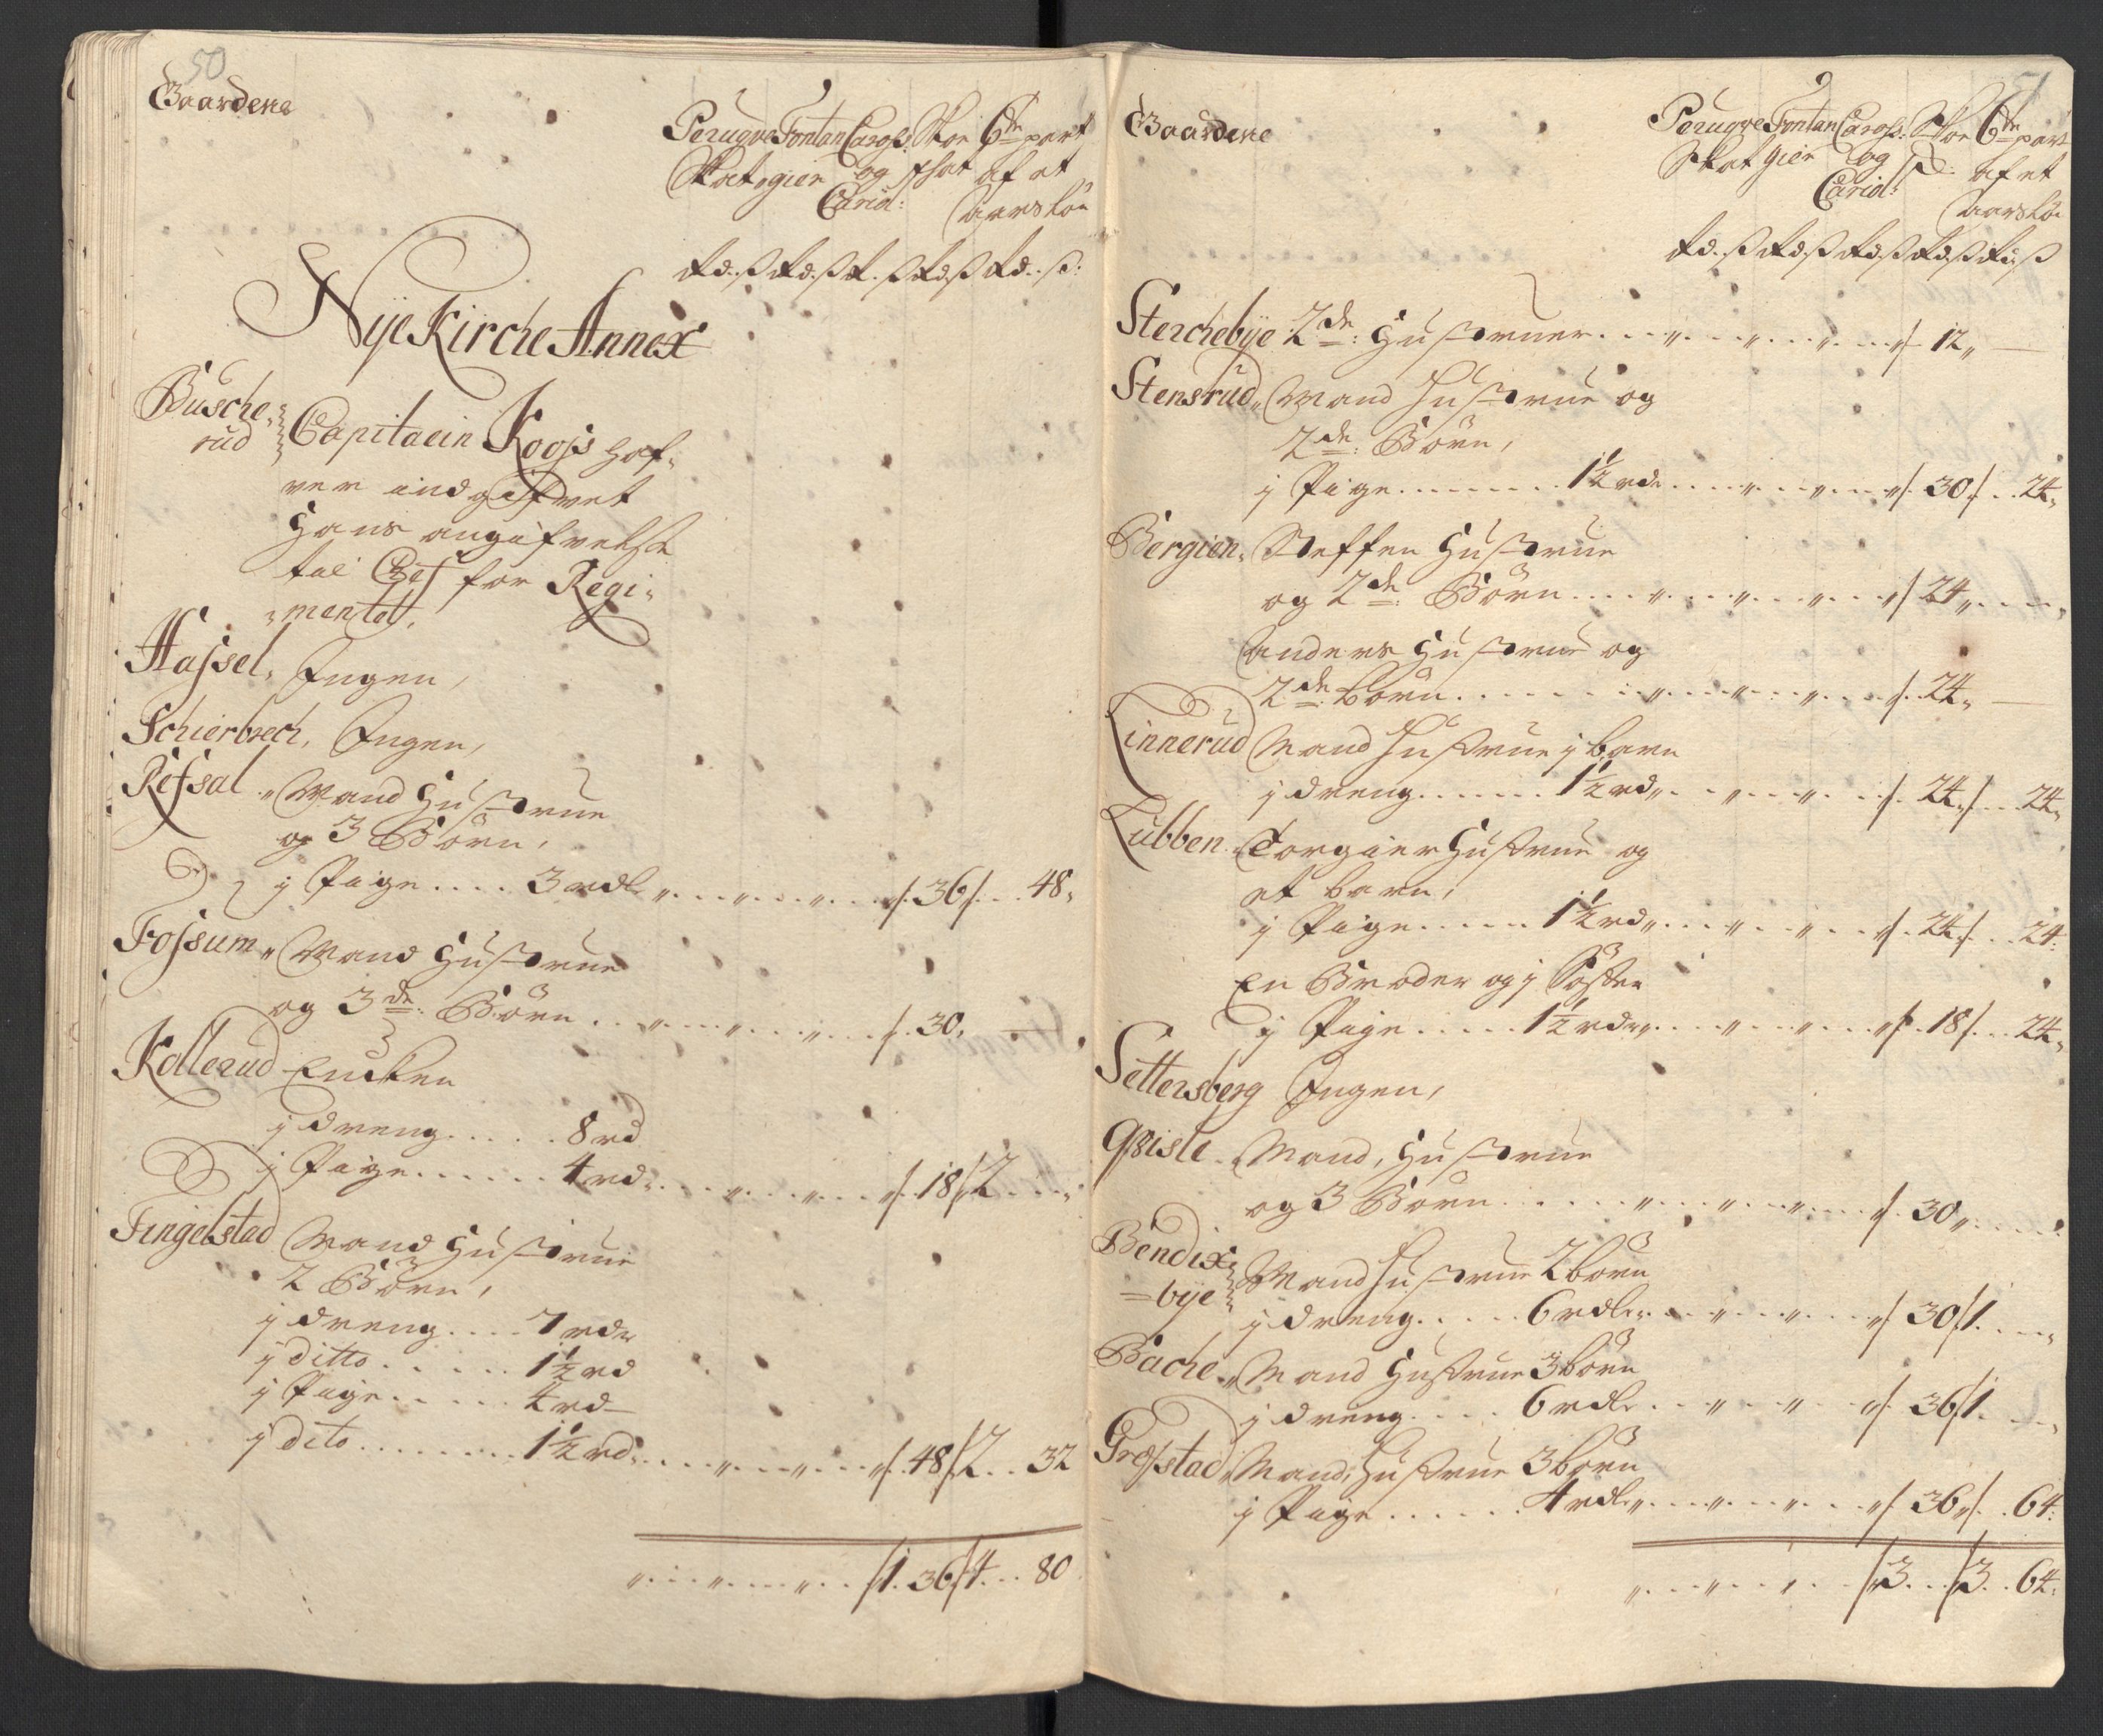 50
Gaardene
Peruqve Fontan Caross: Skoe 6te part
Skat, gier og skat af et
Cariol: aars løn
rd. ß rd. ß rd. ß rd. ß rd. ß.
Nÿe Kirche Annex
Busche,
rud Capitaein Koos haf,
ver indgifvet
hans angifvelse
til Chef for Regi,
,mentet,
Hassel, Ingen,
Schierbrech, Ingen,
Refsal, Mand Hustrue
og 3 Börn,
j Pige .... 3 rdl „ . „ . „ . 36 . 48„
Fossum „ Mand Hustrue
og 3de: Börn . . „ . „ . „ . 30„ —
Kollerud Encken
j dreng ..... 8 rd
j Pige ...... 4 rd „ . „ . „ . 18 2 . .
Fingelstad Mand Hustrue
2 Börn,
j dreng .... 7 rdr
j ditto ...... 1½ rd
j Pige ..... 4 rd
j dito ........ 1½ rd . „ . „ . „ . 48 2 . . 32
„ . . „ . . „ . . 1 . 36 4 . . 80
51
Gaardene
Peruqve Fontan Caross: Skoe 6te part
Skat gier og sk: af et
Cariol: aars løn
rd. ß rd. ß rd. ß rd. ß rd. ß
Sterchebÿe 2de: Hustruer . . „ . „ . „ . 12„ —
Stensrud, Mand Hustrue og
2de: Börn,
j Pige ....... 1½ rdr . . „ . „ . „ . 30 . . 24„
Bergien, Steffen Hustrue
og 2de: Börn . . . „ . „ . „ . 24„ . . .
Anders Hustrue og
2de: Börn . . . . . „ . „ . „ . 24„ —
Linnerud Mand Hustrue j barn
j dreng ...... 1½ rd „ . „ . „ . 24 . . 24„
Lubben, Torgier Hustrue og
et barn,
j Pige ..... 1½ rd „ . „ . „ . 24 . . 24.
En Broder og j Söster
j Pige ..... 1½ rdr . „ . „ . „ . 18 . . 24„
Settersberg Ingen,
Qvisle, Mand, Hustrue
og 3 Börn . . . . „ . „ . „ . 30„ . . .
Bendix,
=bÿe Mand Hustrue 2 börn
j dreng ..... 6 rdlr . „ . „ . „ . 30 1 . . „
Bache, Mand Hustrue 3 börn
j dreng .... 6 rdlr . . „ . „ . „ . 36 1 . . „
Grosstad, Mand, Hustrue 3 börn
j Pige ...... 4 rdlr „ . „ . „ . 36 . . 64.
„ . . „ . . „ . . 3 . . 3 . . 64.